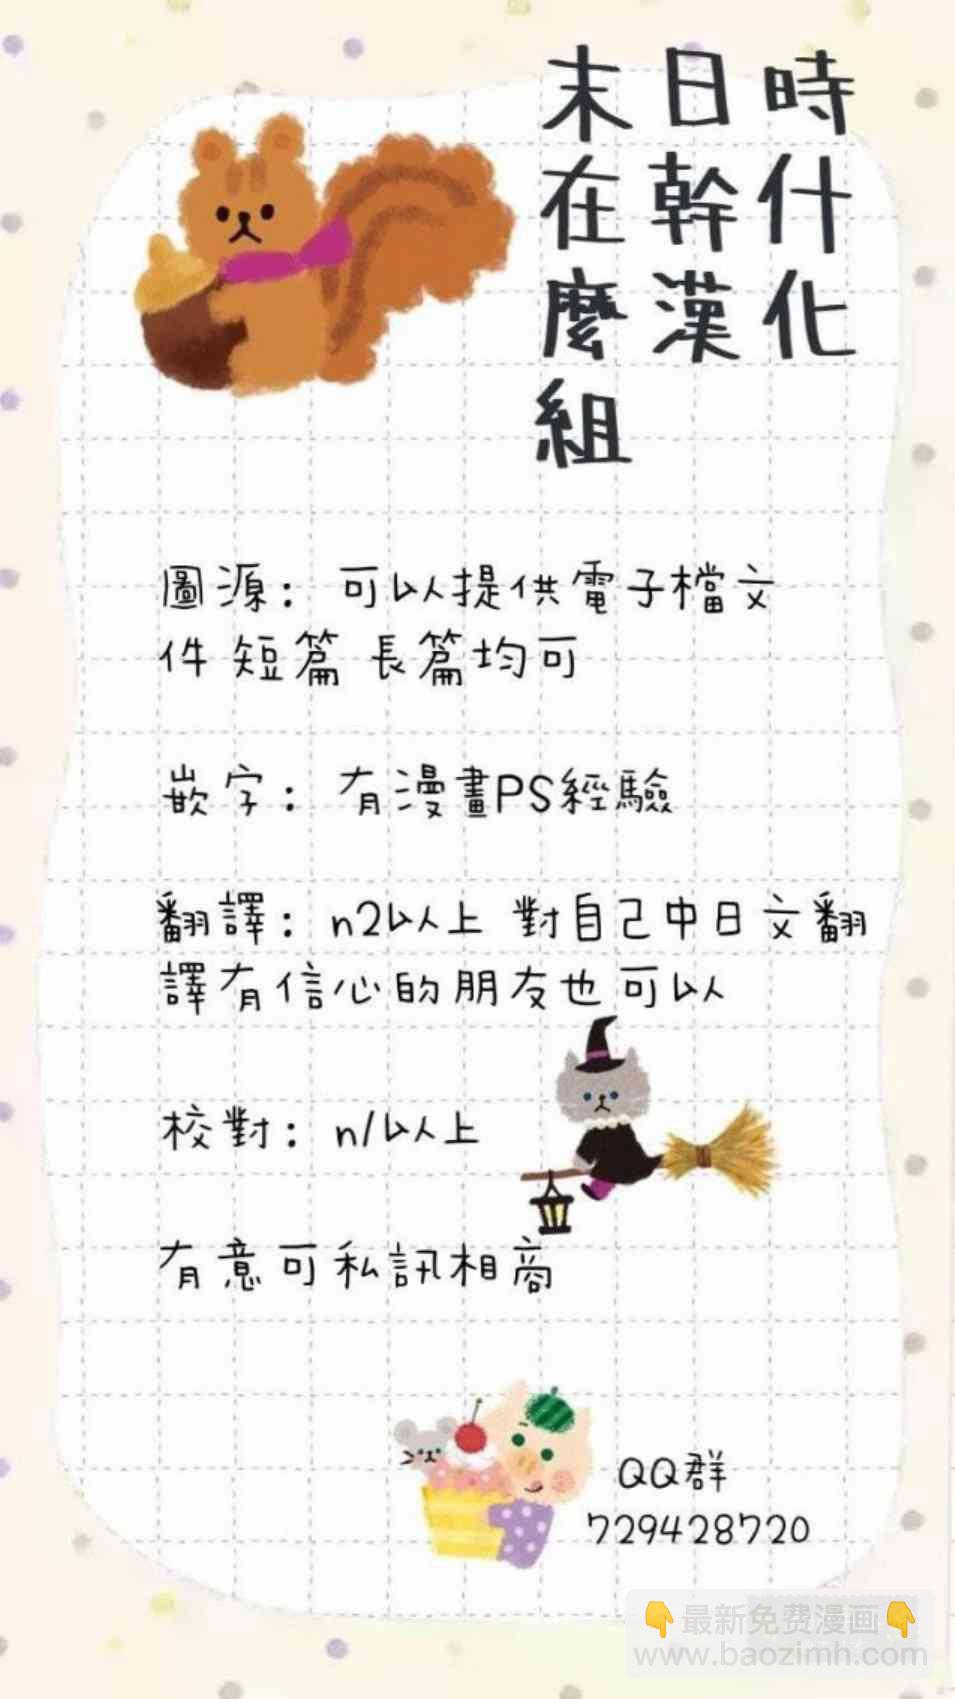 末日時
在幹什
麼漢化
組
圖源：可以提供電子檔文
件 短篇 長篇均可
嵌字：有漫畫PS經驗
翻譯：n2以上 對自己中日文翻
譯有信心的朋友也可以
校對：n1以上
有意可私訊相商
QQ群
729428720
👇最新免费漫画👇
www.baozimh.com